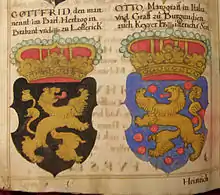 GOTTFRID, den man
nennet im Bart, Hertzog in
Brabant
OTTO, Marggraf in Italia
vnd Graff zu Burgundien
auch Keyser
Heinrich